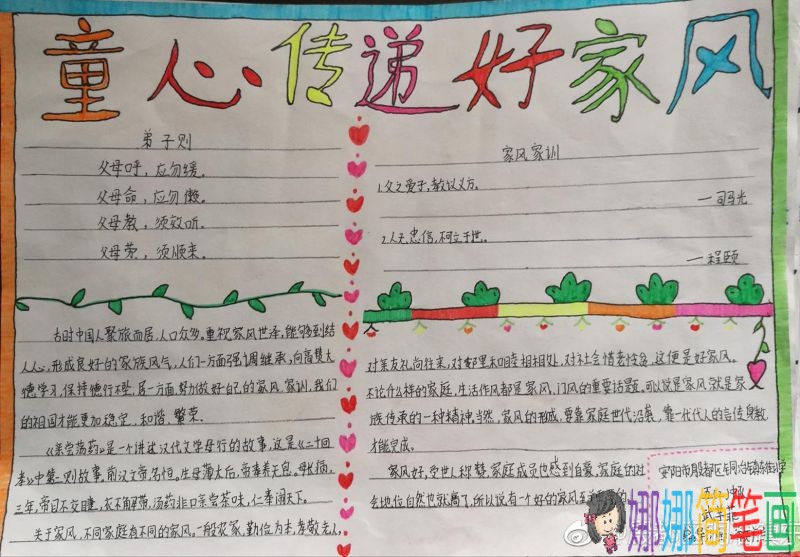 童心传递好家风
弟子则
父母呼，应勿缓。
父母命，应勿懒。
父母教，须敬听。
父母责，须顺来。
家风家训
1.父之爱子，教以义方。
—司马光
2.人无忠信，不可立于世。
—程颐
古时中国人聚族而居，人口众多，重视家风世泽，能够到结
人人心，形成良好的家族风气，人们一方面强调继承，向高慧大
德学习，保持德行不坠，另一方面，努力做好自己的家风家训，我们
的祖国才能更加稳定，和谐，繁荣。
《亲尝汤药》是一个讲述汉代文学母行的故事，这是《二十四
孝》中第一则故事，前汉文帝，名恒。生母薄太后，帝奉养无怠。母长病，
三年，帝目不交睫，衣不解带，汤药非口亲尝荼味，仁孝闻天下。
关于家风，不同家庭有不同的家风。一般农家，勤俭为本，孝敬老人，
对亲友礼尚往来，对邻里和睦相处，对社会惜老怜贫，这便是好家风。
不论什么样的家庭，生活作风都是家风、门风的重要话题。可以说是家风就是家
族传承的一种精神，当然，家风的形成，要靠家庭世代沿袭，靠一代代人的言传身教
才能完成。
家风好，受世人称赞，家庭成员也感到自豪，家庭的社
会地位自然也就高了，所以说有一个好的家风至
安阳市殷都区
武子菲
娜娜简笔画